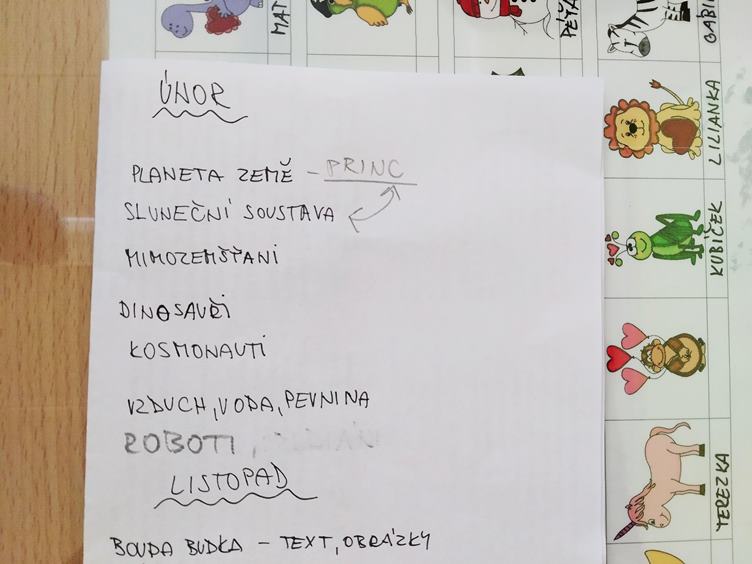 ÚNOR
PLANETA ZEMĚ – PRINC
SLUNEČNÍ SOUSTAVA
MIMOZEMŠŤANI
DINOSAUŘI
KOSMONAUTI
VZDUCH, VODA, PEVNINA
ROBOTI,
LISTOPAD
BOUDA BUDKA – TEXT, OBRÁZKY
LILIANKA
KUBÍČEK
TEREZKA